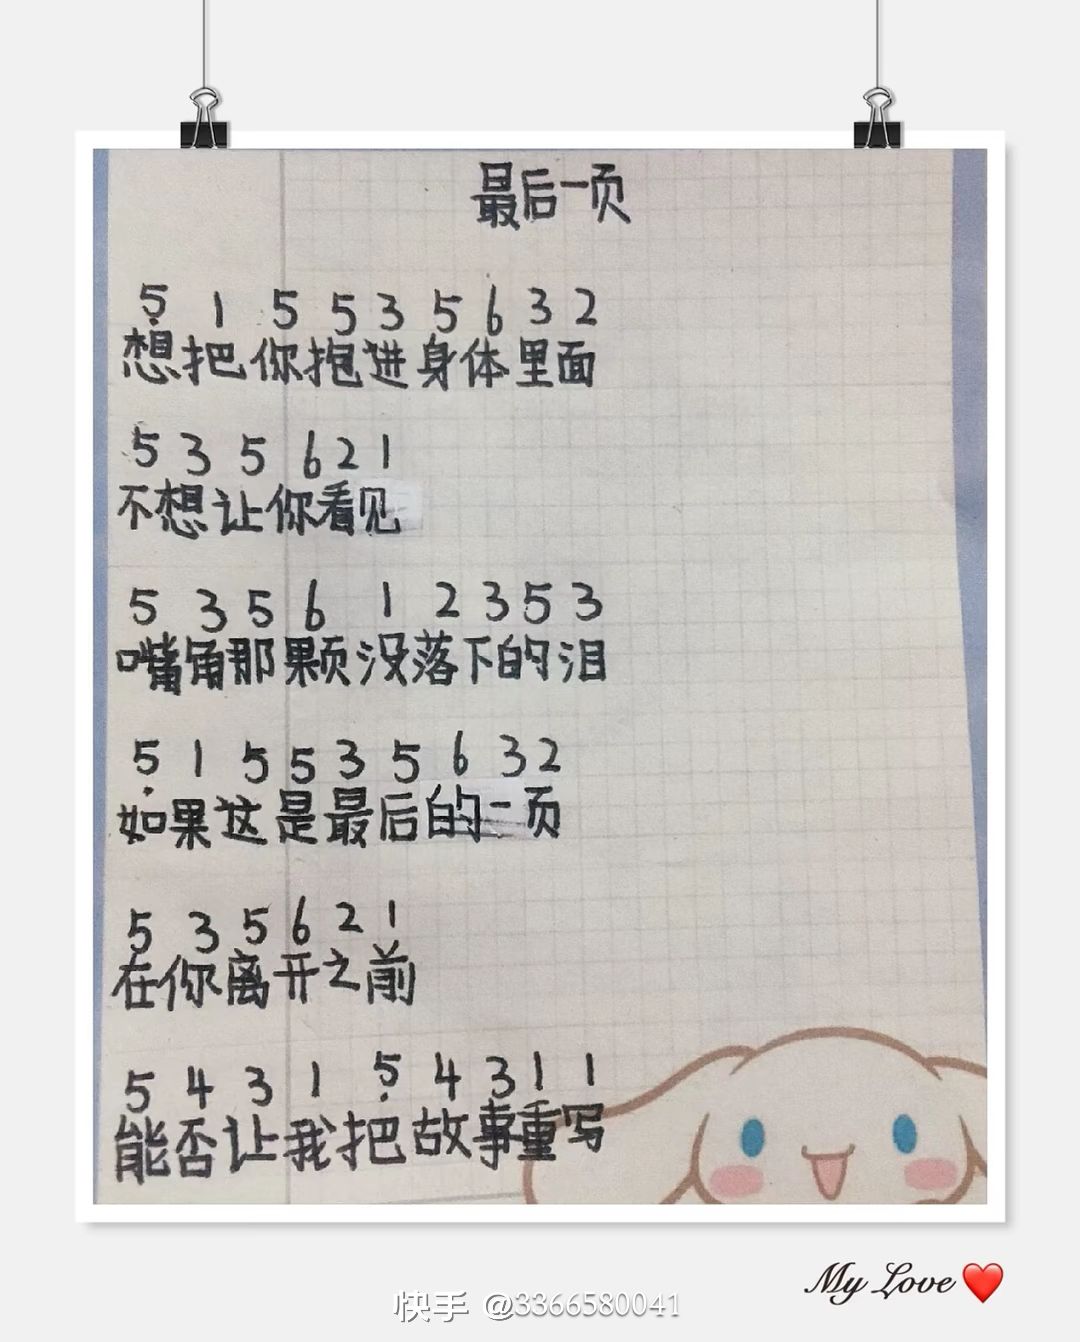 最后一页
5̣ 1 5 5 3 5 6 3 2
想把你抱进身体里面
5 3 5 6 2 1
不想让你看见
5 3 5 6 1 2 3 5 3
嘴角那颗没落下的泪
5̣ 1 5 5 3 5 6 3 2
如果这是最后的一页
5 3 5 6 2 1
在你离开之前
5 4 3 1 5̣ 4 3 1 1
能否让我把故事重写
My Love❤️
快手 @3366580041